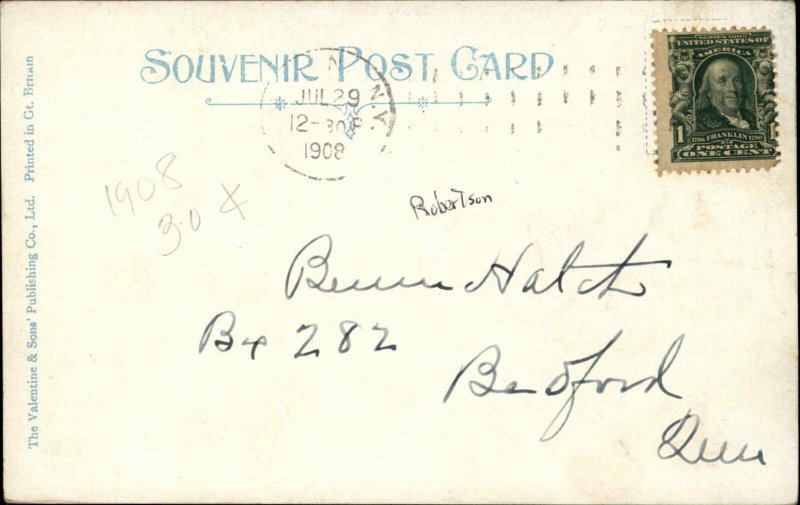 SOUVENIR POST CARD
N
JUL 29
12-30P
1908
N.Y.
SERIES 1902
UNITED STATES OF
AMERICA
1 FRANKLIN 1
POSTAGE
ONE CENT
The Valentine & Sons' Publishing Co., Ltd. Printed in Gt. Britain
1908
30
Robertson
Hatch
Bx 282
Bedford